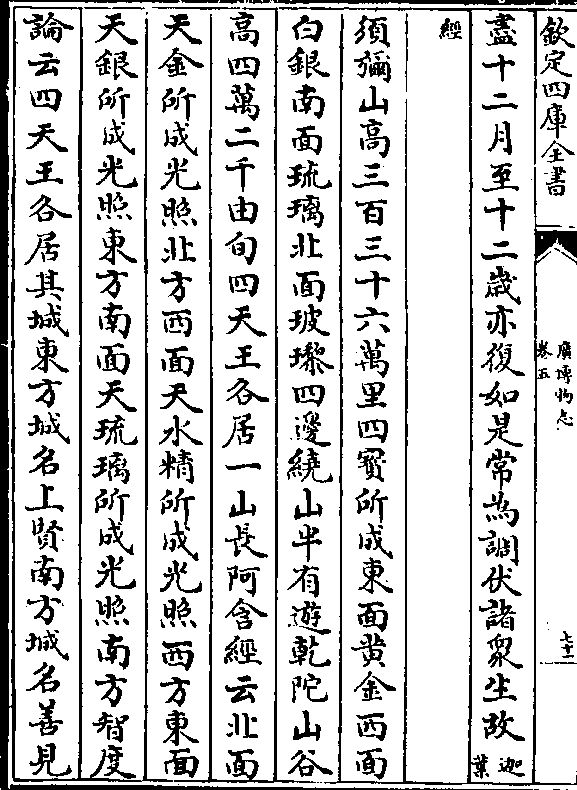 欽定四庫全書
廣博物志
卷五
七十二
盡十二月至十二歲亦復如是常為調伏諸衆生故迦葉
經
須彌山高三百三十六萬里四寳所成東面黄金西面
白銀南面琉璃北面玻瓈四邊繞山半有遊乾陀山谷
高四萬二千由旬四天王各居一山長阿含經云北面
天金所成光照北方西面天水精所成光照西方東面
天銀所成光照東方南面天琉璃所成光照南方智度
論云四天王各居其城東方城名上賢南方城名善見